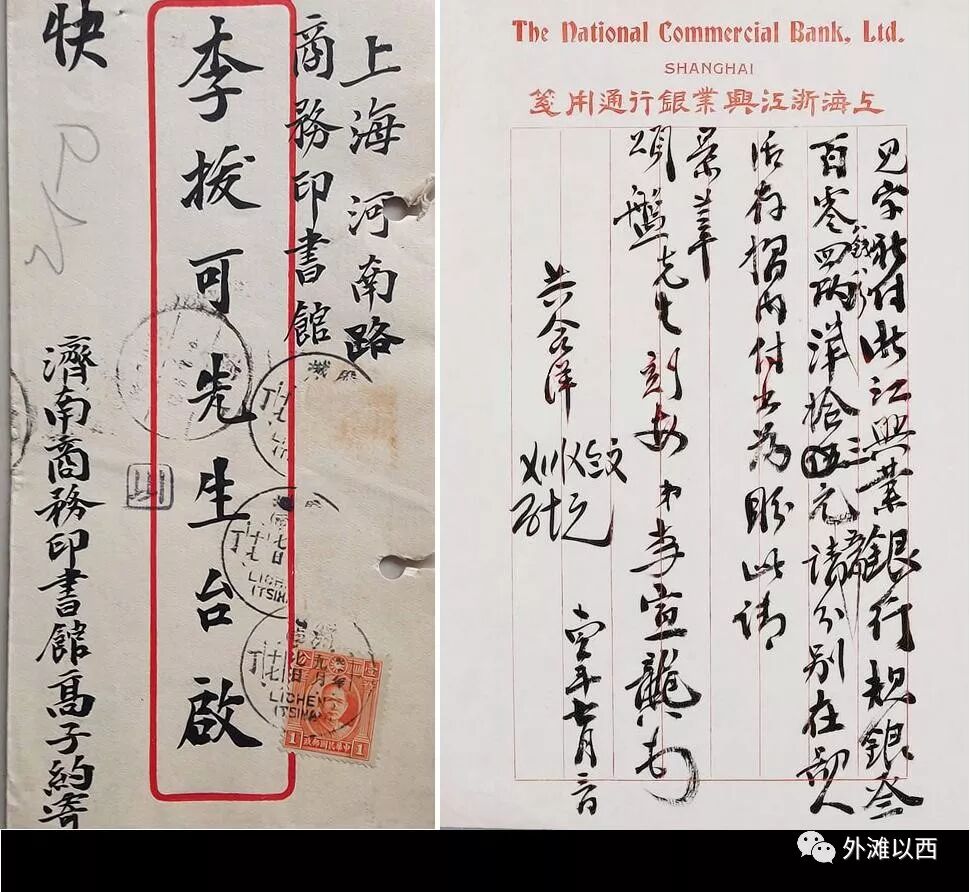 上海河南路
商務印書館
李拔可先生台啟
快
濟南商務印書館高子約寄
中華民國郵政
1 1
The National Commercial Bank, Ltd.
SHANGHAI
上海浙江興業銀行通用箋
見字祈付浙江興業銀行規銀叁
百零四兩 洋拾 元請分別在鄙人
活存摺內付出為盼此請
景莘
頌盤先生 刻安 弟李宣龔
共合洋
年七月
外滩以西